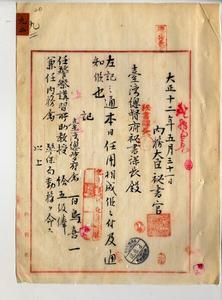 大正十二年五月三十一日
内務大臣秘書官
臺灣總督府秘書課長殿
左記之通本日任用相成候ニ付及通
知候也
記
臺灣總督府属 百島喜一
任警察講習所助教授 給五級俸
兼任内務属 警保局勤務ヲ命ス
以上